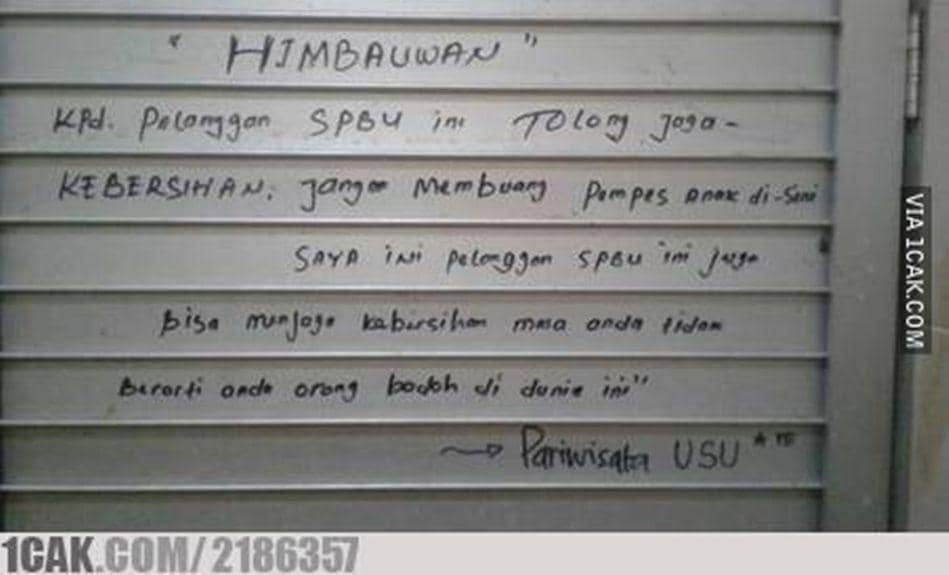 " HIMBAUWAN "
Kpd. Pelanggan SPBU ini Tolong Jaga-
KEBERSIHAN. Jangan Membuang Pampes Anak di-Sini
SAYA ini pelanggan SPBU ini juga
bisa menjaga kebersihan masa anda tidak
Berarti anda orang bodoh di dunia ini"
Pariwisata USU
VIA 1CAK.COM
1CAK.COM/2186357